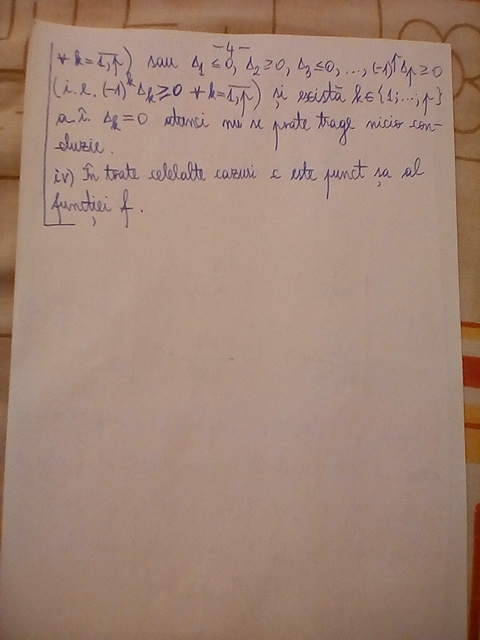 -4-
∀ k=1,p̅) sau Δ₁ ≤ 0, Δ₂ ≥ 0, Δ₃ ≤ 0, ..., (-1)ᵖ Δₚ ≥ 0
(i.e. (-1)ᵏ Δₖ ≥ 0 ∀ k=1,p̅) și există k∈{1;...;p}
a.î. Δₖ=0 atunci nu se poate trage nicio con-
cluzie.
iv) În toate celelalte cazuri c este punct șa al
funcției f.